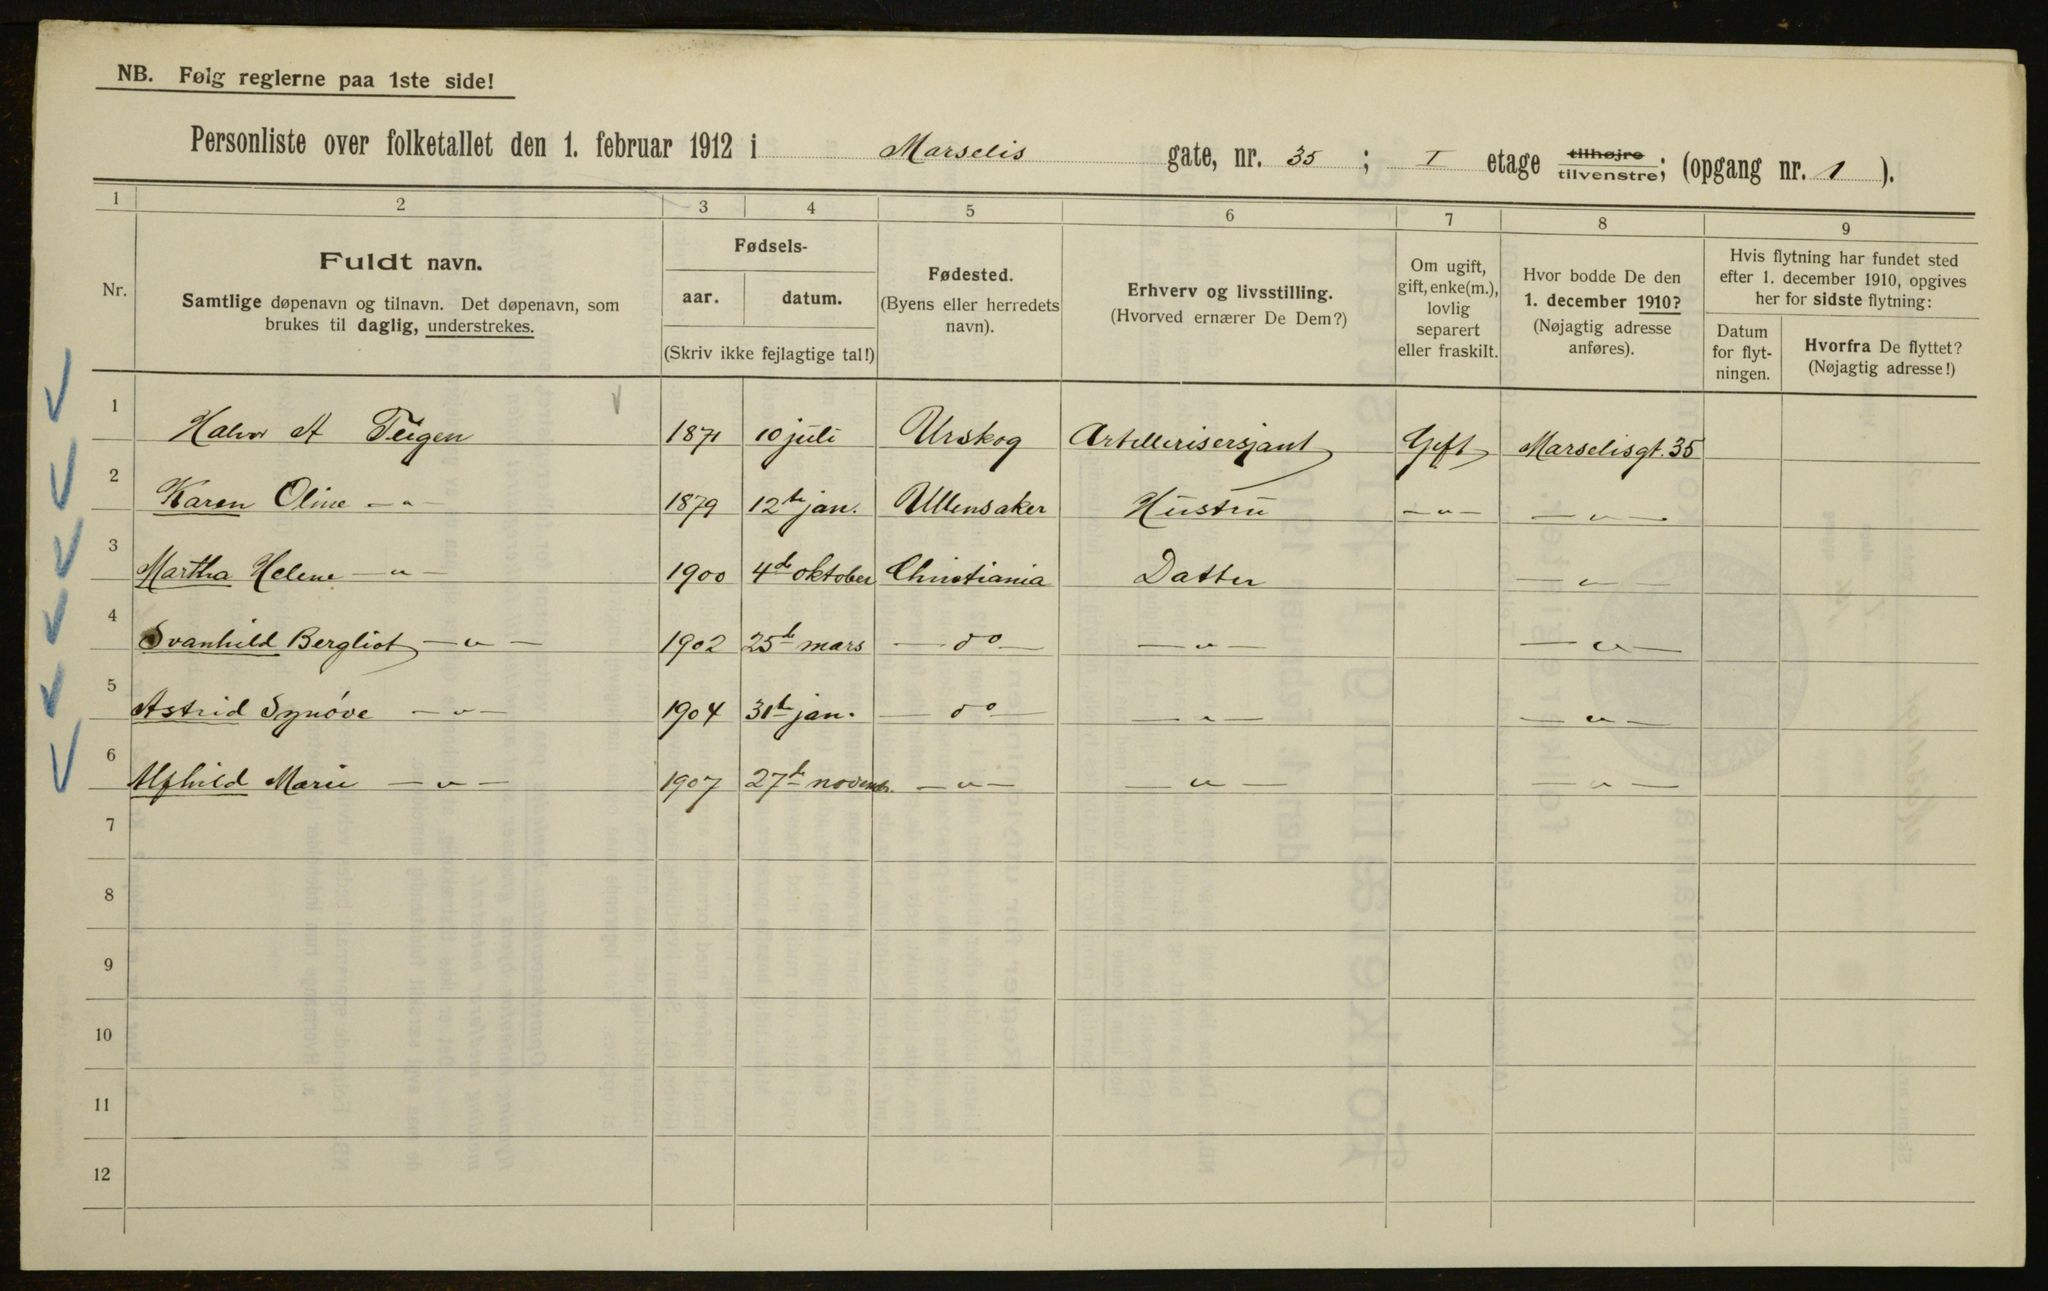 NB. Følg reglerne paa 1ste side!
Personliste over folketallet den 1. februar 1912 i Marselis gate, nr. 35; I etage tilhøjre tilvenstre; (opgang nr. 1).
1 2 3 4 5 6 7 8 9
Nr.
Fuldt navn.
Samtlige døpenavn og tilnavn. Det døpenavn, som
brukes til daglig, understrekes.
Fødsels-
aar. datum.
(Skriv ikke fejlagtige tal!)
Fødested.
(Byens eller herredets
navn).
Erhverv og livsstilling.
(Hvorved ernærer De Dem?)
Om ugift,
gift, enke(m.),
lovlig
separert
eller fraskilt.
Hvor bodde De den
1. december 1910?
(Nøjagtig adresse
anføres).
Hvis flytning har fundet sted
efter 1. december 1910, opgives
her for sidste flytning:
Datum
for flyt-
ningen.
Hvorfra De flyttet?
(Nøjagtig adresse!)
1 Halvor A Teigen 1871 10 juli Urskog Artillerisersjant Gift Marselisgt. 35
2 Karen Oline — " — 1879 12te jan. Ullensaker Hustru — " — — " —
3 Martha Helene — " — 1900 4de oktober Christiania Datter — " —
4 Svanhild Bergliot — " — 1902 25de mars — do — — " — — " —
5 Astrid Synöve — " — 1904 31te jan. — do — — " — — " —
6 Alfhild Marie — " — 1907 27de novemb. — " — — " — — " —
7
8
9
10
11
12